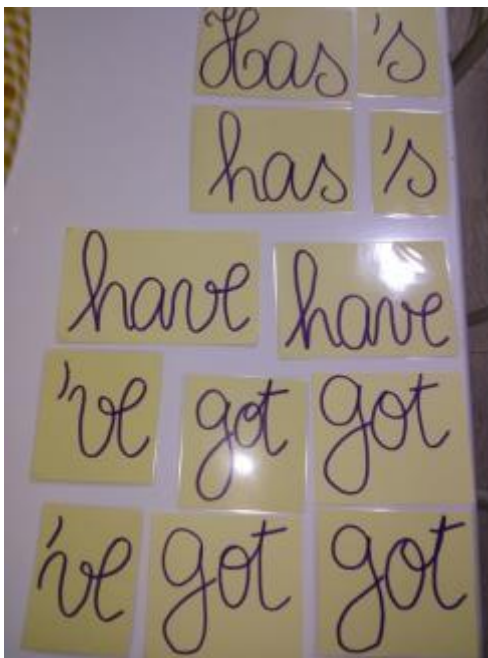 Has 's
has 's
have have
've got got
've got got